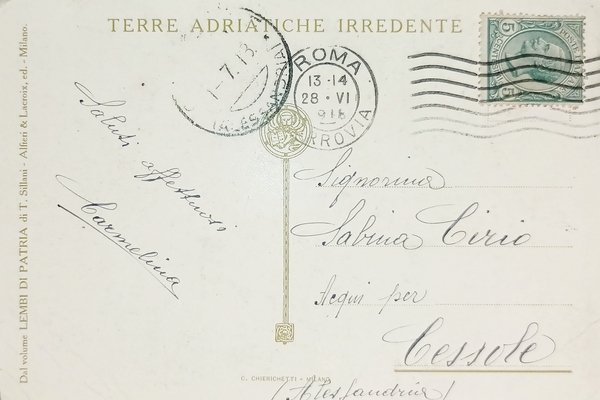 TERRE ADRIATICHE IRREDENTE
Dal volume LEMBI DI PATRIA di T. Sillani - Alfieri & Lacroix, ed. - Milano.
1-7.18.
(ALESSANDRIA)
ROMA
13-14
28·VI
918
FERROVIA
5
5
Saluti
affettuosi
Carmelina
Signorina
Sabina Cirio
Acqui per
Cessole
(Alessandria)
C. CHIERICHETTI - MILANO